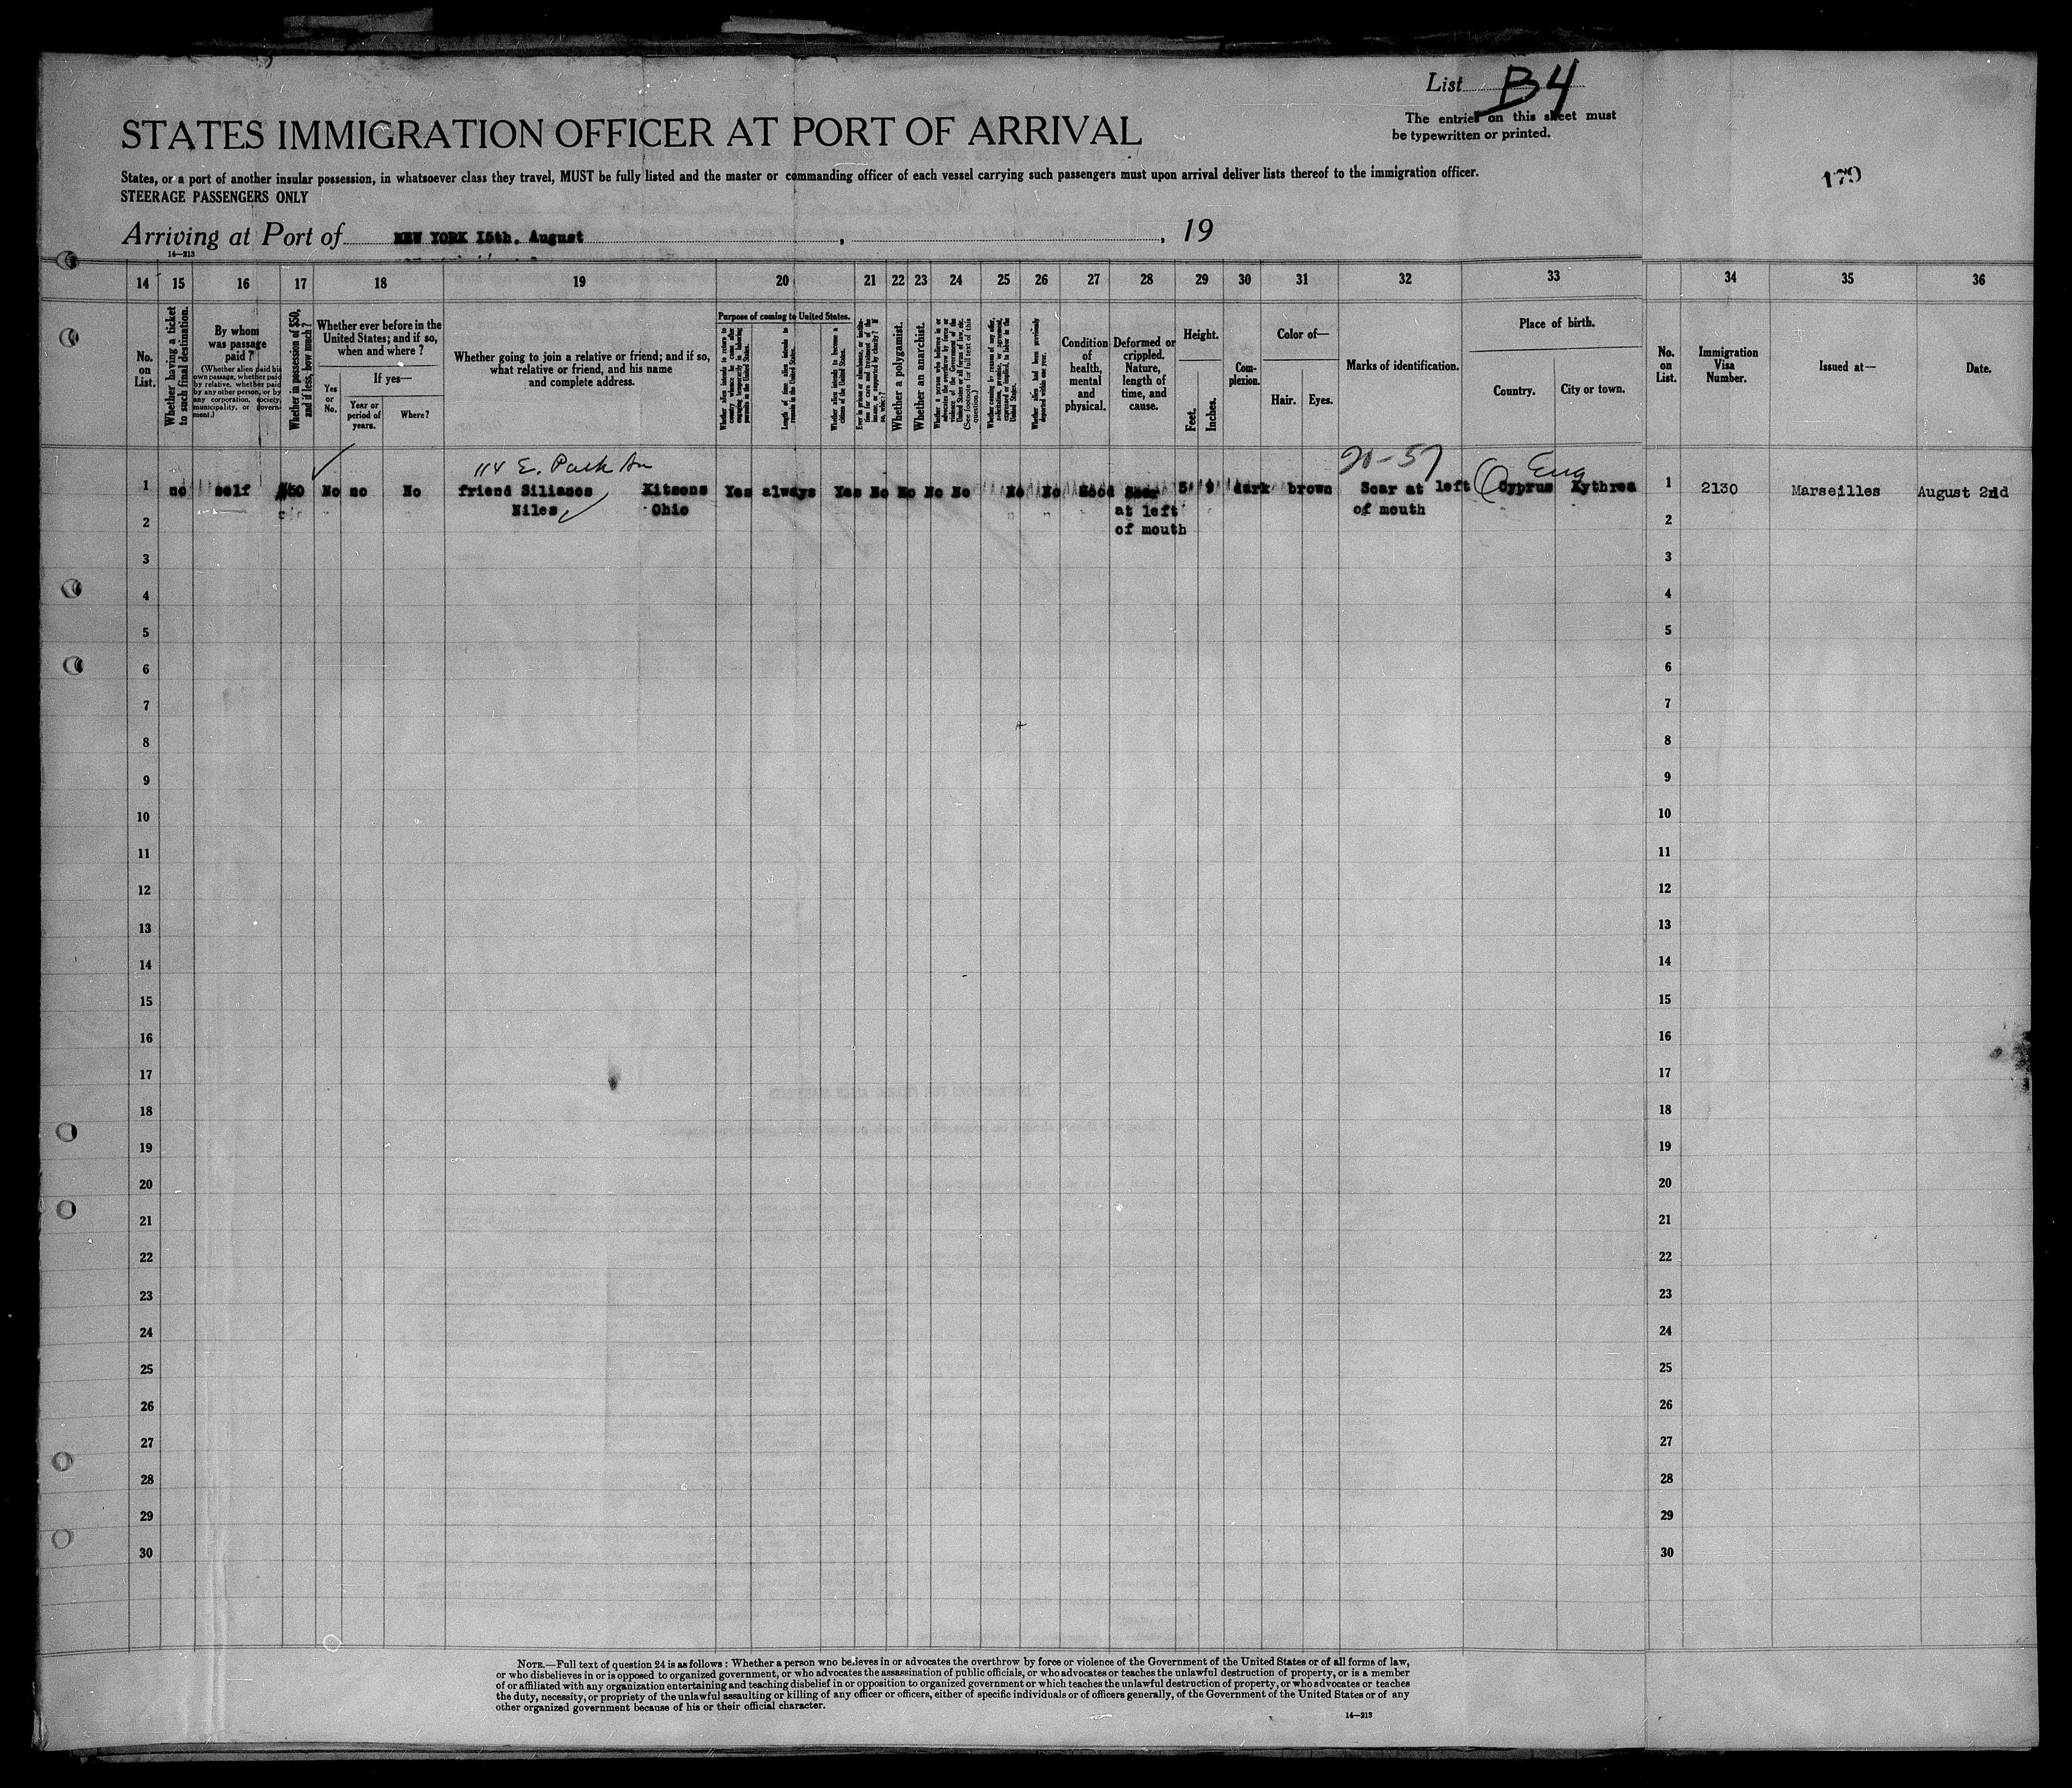 List B4
The entries on this sheet must
be typewritten or printed.
STATES IMMIGRATION OFFICER AT PORT OF ARRIVAL
States, or a port of another insular possession, in whatsoever class they travel, MUST be fully listed and the master or commanding officer of each vessel carrying such passengers must upon arrival deliver lists thereof to the immigration officer.
STEERAGE PASSENGERS ONLY
179
Arriving at Port of NEW YORK 15th. August , , 19
14—213
14 15 16 17 18 19 20 21 22 23 24 25 26 27 28 29 30 31 32 33 34 35 36
No. on List.
Whether having a ticket to such final destination.
By whom was passage paid?
(Whether alien paid his own passage, whether paid by relative, whether paid by any other person, or by any corporation, society, municipality, or government.)
Whether in possession of $50, and if less, how much?
Whether ever before in the United States; and if so, when and where?
Yes or No.
If yes—
Year or period of years.
Where?
Whether going to join a relative or friend; and if so, what relative or friend, and his name and complete address.
Purpose of coming to United States.
Length of time alien intends to remain in the United States.
Whether alien intends to become a citizen of the United States.
Whether a polygamist.
Whether an anarchist.
(See footnote for full text of this question.)
Condition of health, mental and physical.
Deformed or crippled. Nature, length of time, and cause.
Height.
Feet.
Inches.
Complexion.
Color of—
Hair.
Eyes.
Marks of identification.
Place of birth.
Country.
City or town.
No. on List.
Immigration Visa Number.
Issued at—
Date.
114 E. Park Av
20-57
Eng
1 no self $50 No no No friend Silianos Kitsons Yes always Yes No No No No No No Good Scar 5 9 dark brown Scar at left Cyprus Kythrea 1 2130 Marseilles August 2nd
Niles Ohio at left of mouth
of mouth
2 2
3 3
4 4
5 5
6 6
7 7
8 8
9 9
10 10
11 11
12 12
13 13
14 14
15 15
16 16
17 17
18 18
19 19
20 20
21 21
22 22
23 23
24 24
25 25
26 26
27 27
28 28
29 29
30 30
NOTE.—Full text of question 24 is as follows: Whether a person who believes in or advocates the overthrow by force or violence of the Government of the United States or of all forms of law,
or who disbelieves in or is opposed to organized government, or who advocates the assassination of public officials, or who advocates or teaches the unlawful destruction of property, or is a member
of or affiliated with any organization entertaining and teaching disbelief in or opposition to organized government or which teaches the unlawful destruction of property, or who advocates or teaches
the duty, necessity, or propriety of the unlawful assaulting or killing of any officer or officers, either of specific individuals or of officers generally, of the Government of the United States or of any
other organized government because of his or their official character.
14—213